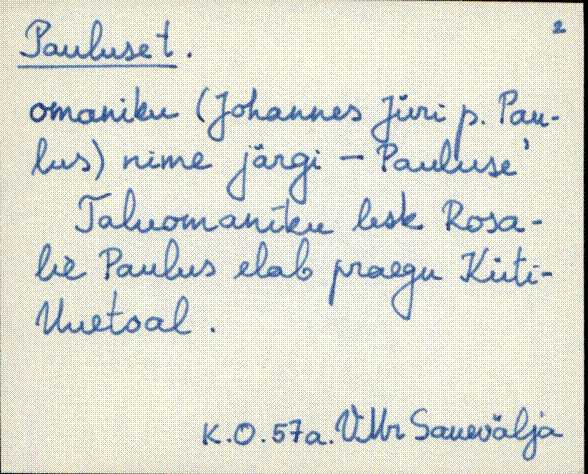 2
Pauluse t.
omaniku (Johannes Jüri p. Pau-
lus) nime järgi – Pauluse'
Taluomaniku lesk Rosa-
lie Paulus elab praegu Kiiti-
Uuetoal.
K.O. 57a. V.Mr Sauevälja